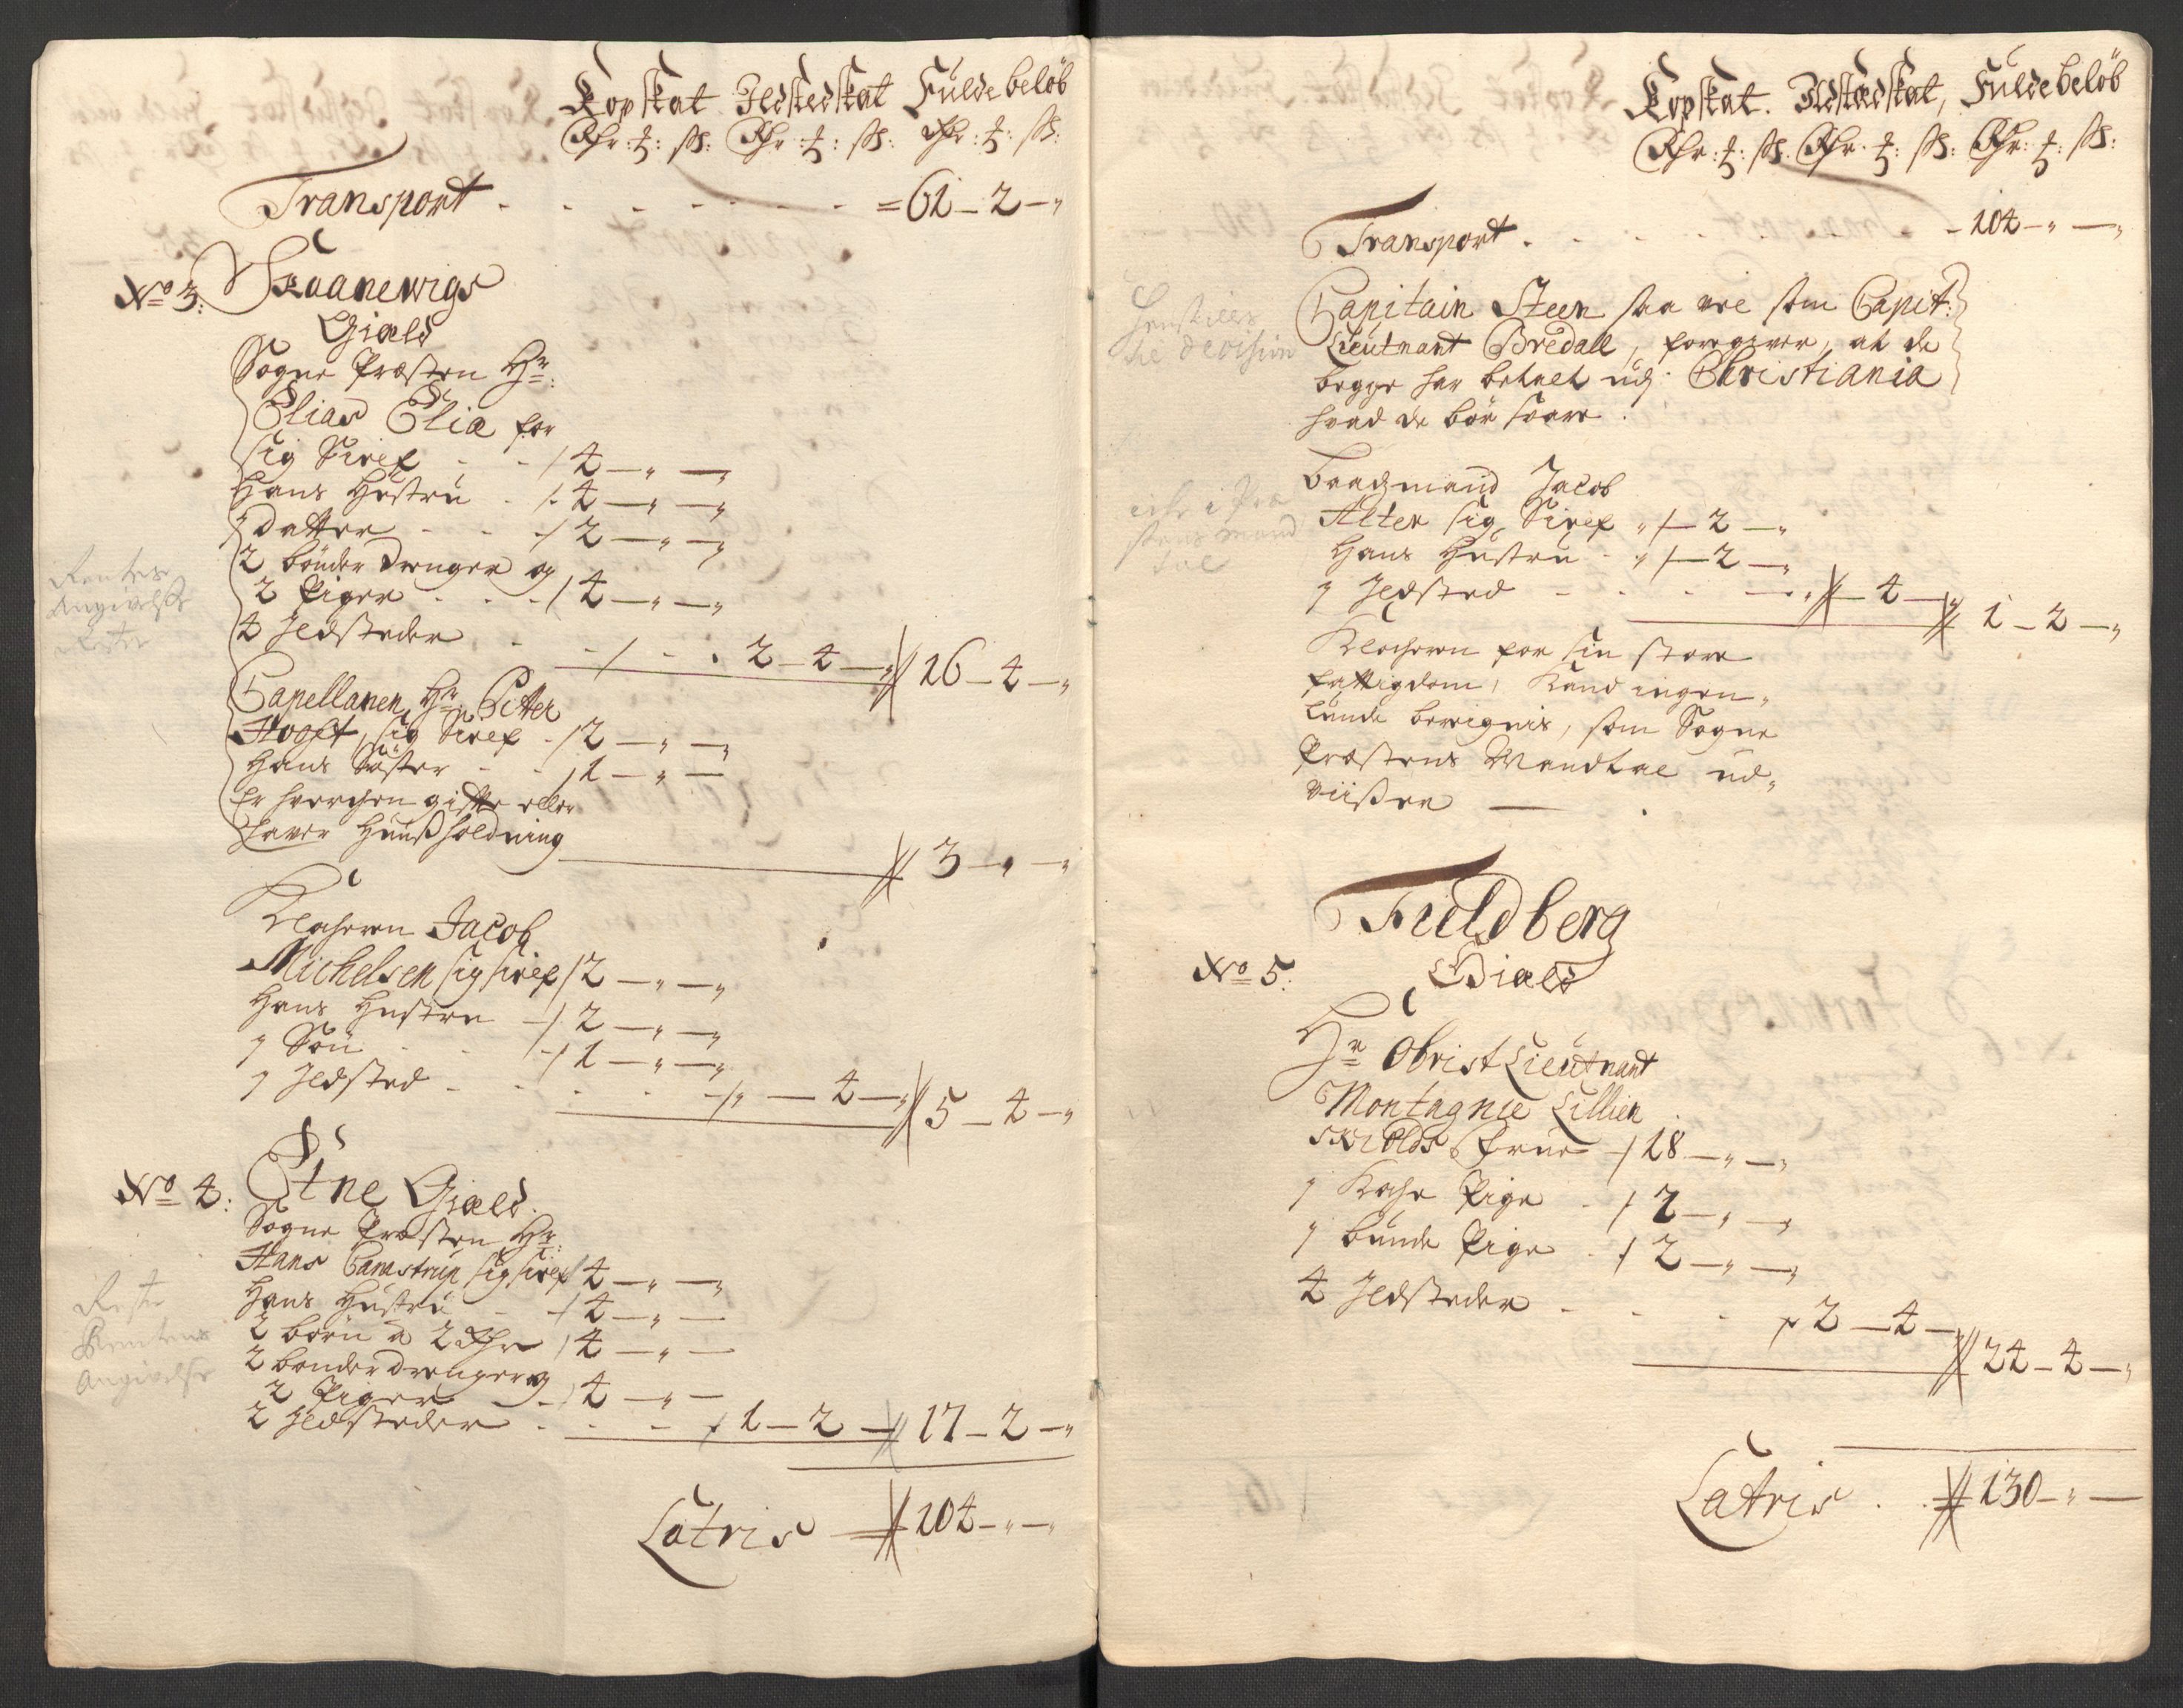 Kopskat Ildstedskat Fulde beløb
Rdr: : ß: Rdr: : ß: Rdr: : ß:
Transport - - - - - - - = 61 - 2 - "
No 3: Skaanevigs
Giæld
Sogne Præsten Hr:
Elias Eliæ for
sig Sielf - - / 4 - " -
Hans Hustru - /: 4 - " - "
1 datter - - - / 2 - " - "
2 bønder drenger og
2 Piger - - - / 4 - " - "
4 Ildsteder - - / - - 2 - 4 - " // 16 - 4 - "
Capellanen Hr: Pitter
Hoyst, sig Sielf - / 2 - " - "
Hans Søster - - / 1 - " -
Er hverchen gifft eller
haver Huußholdning // 3 - " - "
Klocheren Jacob
Michelsen sig sielf / 2 - " - "
Hans Hustru - / 2 - " - "
1 Søn - - - / 1 - " - "
1 Ildsted - - - - / " - 4 - " // 5 - 4 - "
No 4: Etne Giæld.
Sogne Præsten Hr:
Hans Carastrup sig sielf / 4 - " - "
Hans Hustru - - / 4 - " -
2 børn a 2 Rdr / 4 - " -
2 bønder drenger og
2 Piger - / 4 - " -
2 Ildsteder - - - / 1 - 2 - // 17 - 2 - "
Rentens
Angivelse
Latris // 104 - " - "
Kopskat. Ildstædskat, Fulde beløb
Rdr: : ß. Rdr. : ß: Rdr: : ß:
Transport - - - - - - - - 104 - " - "
Capitain Steen saa vel som Capit:
Lieutnant Bredall, foregiver, at de
begge har betalt udj Christiania
hvad de bør svare.
Baadzmand Jacob
Alter sig Sielf " / - 2 - "
Hans Hustru - " / - 2 - "
1 Ildsted - - - - " // - 4 - " // 1 - 2 - "
Klocheren for sin store
fattigdom, Kand ingen-
lunde bereignis, som Sogne
Præstens Mandtal ud-
viißer
Fieldberg
No 5: Giæld
Hr Obrist Lieutnant
Montagnie Lillien
skiolds frue - / 18 - " - "
1 Koche Pige - / 2 - " - "
1 bunde Pige - / 2 - " - "
4 Ildsteder - - - / 2 - 4 - // 24 - 4 - "
Latris . . // 130 - " -